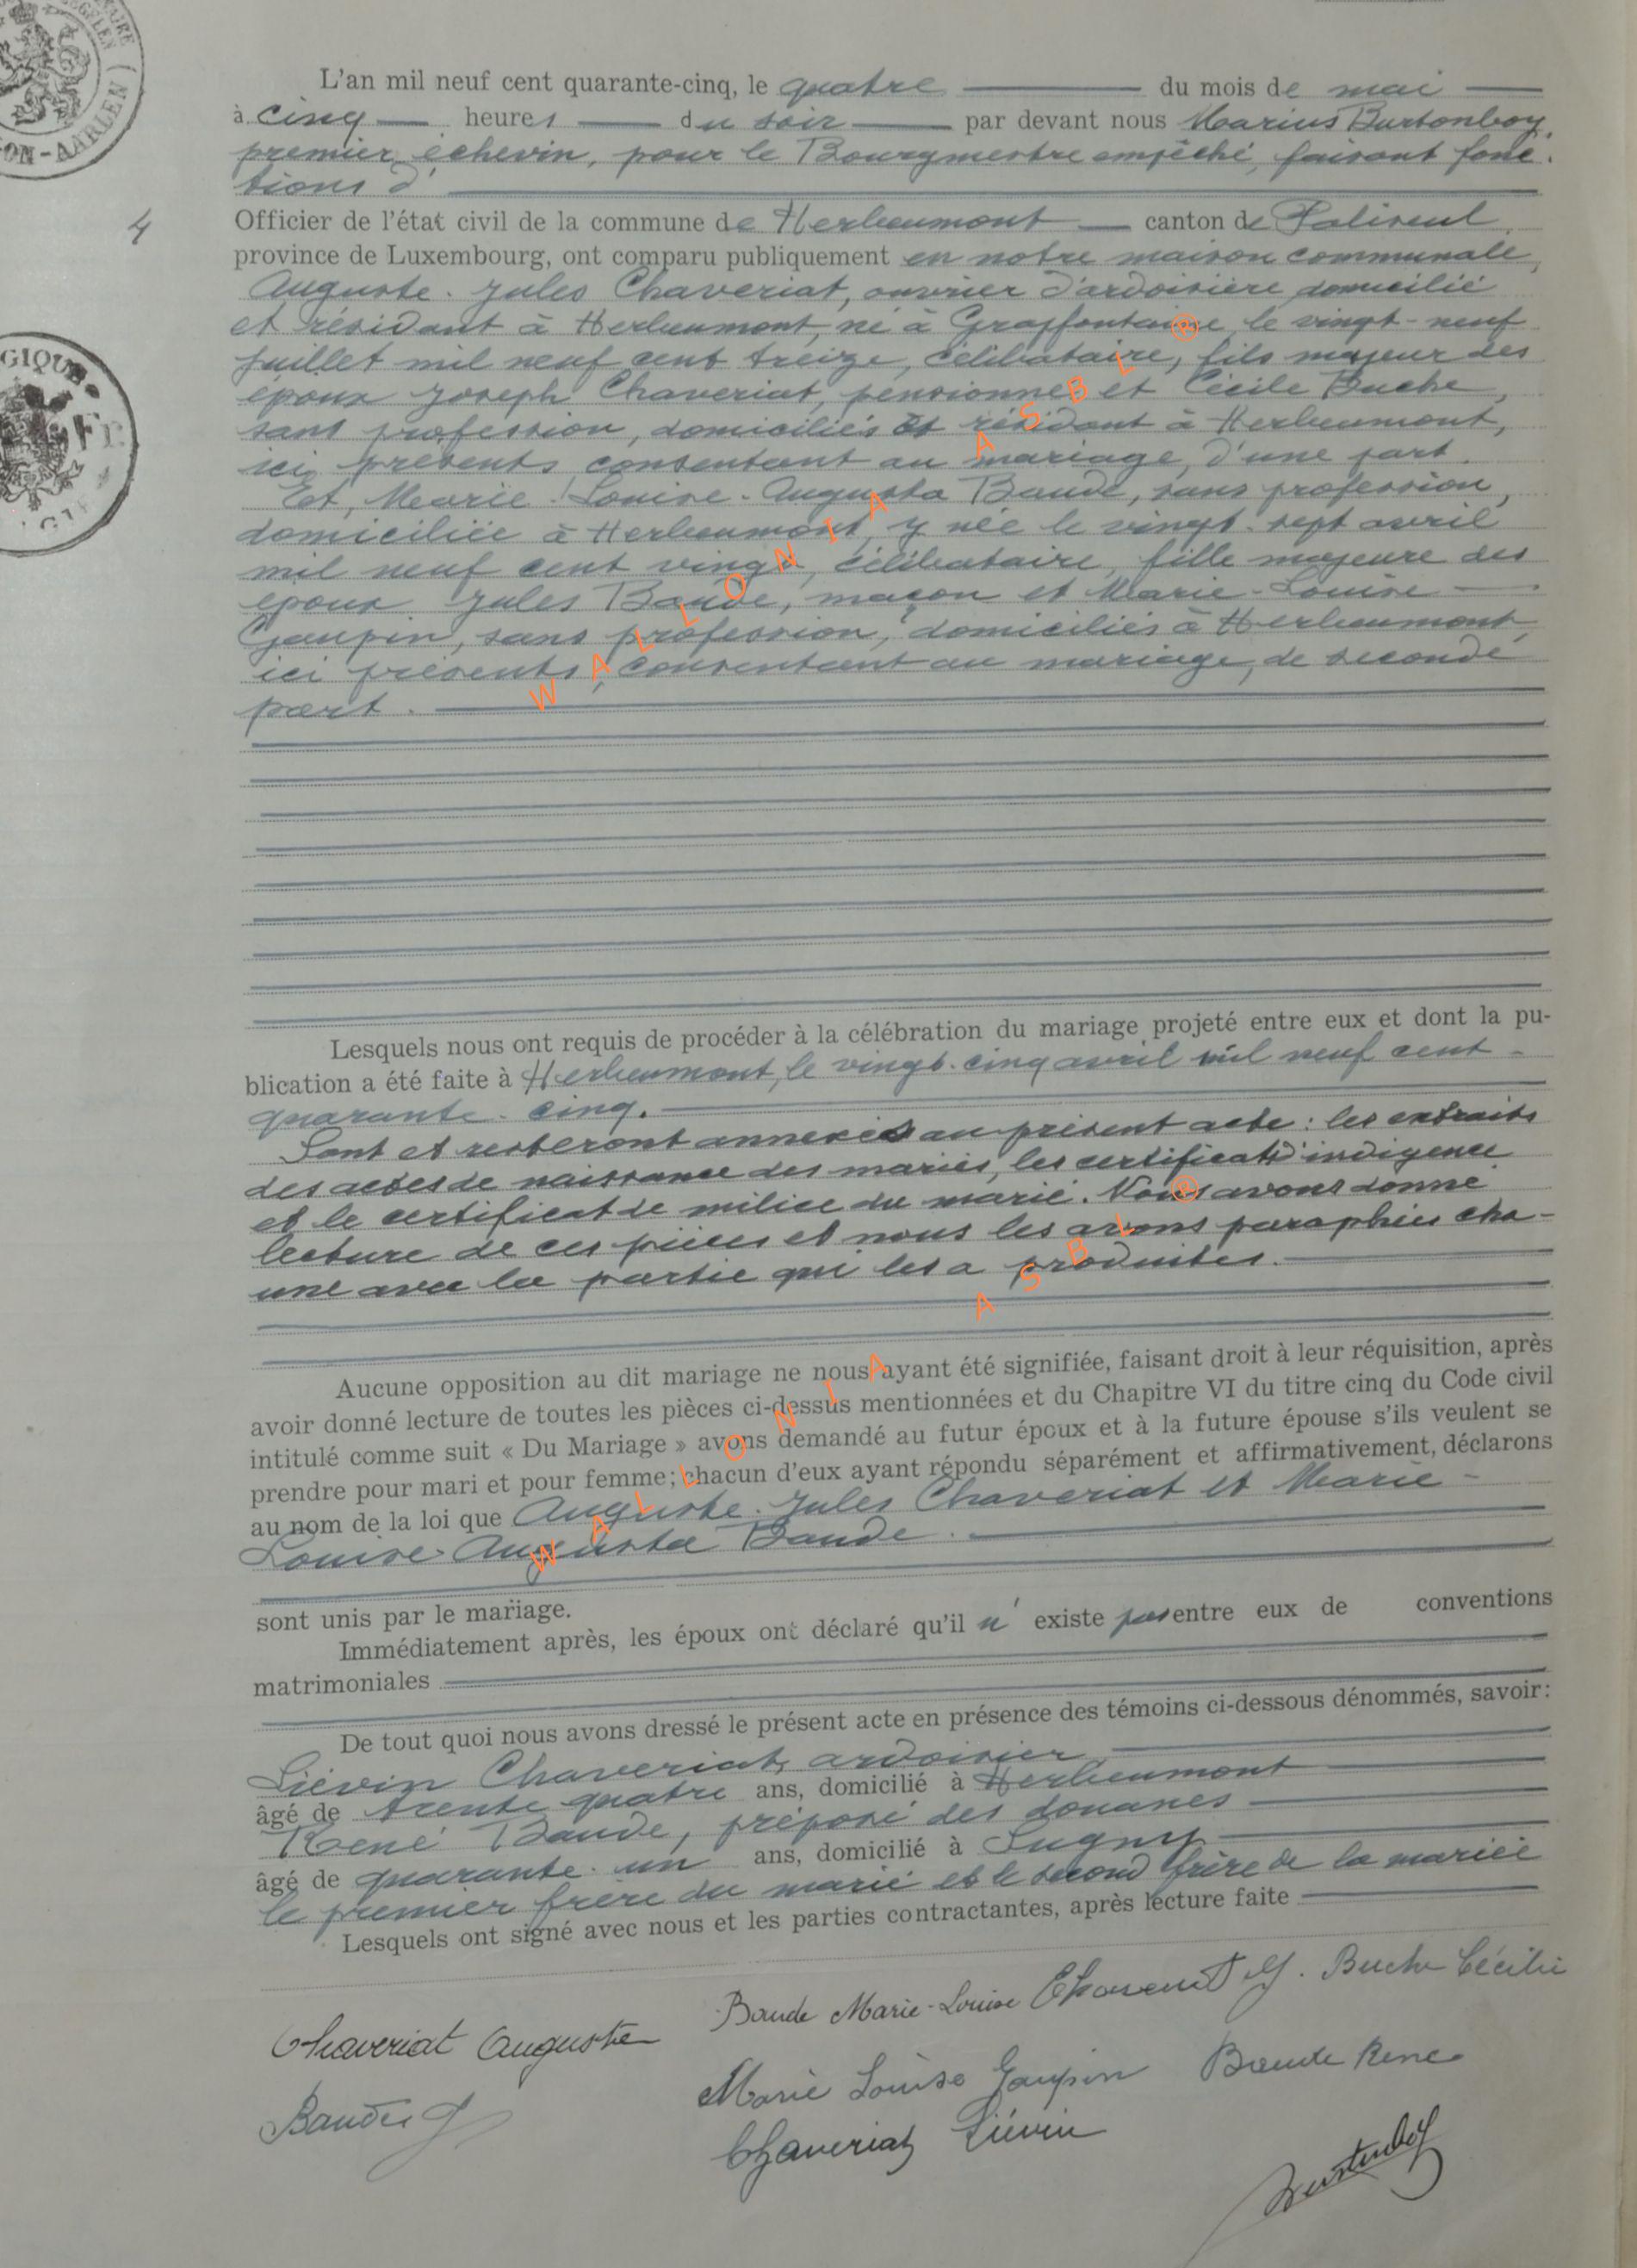 L'an mil neuf cent quarante-cinq, le quatre du mois de mai
à cinq heures du soir par devant nous Marius Burtonboy,
premier échevin, pour le Bourgmestre empêché, faisant fonc-
tions d'
4
Officier de l'état civil de la commune de Herbeumont canton de Paliseul,
province de Luxembourg, ont comparu publiquement en notre maison communale,
Auguste-Jules Chaveriat, ouvrier d'ardoisière domicilié
et résidant à Herbeumont, né à Grapfontaine, le vingt-neuf
juillet mil neuf cent treize, célibataire, fils majeur des
époux Joseph Chaveriat, pensionné et Cécile Buche,
sans profession, domiciliés et résidant à Herbeumont,
ici présents consentant au mariage, d'une part.
Et, Marie-Louise-Augusta Baude, sans profession,
domiciliée à Herbeumont, y née le vingt-sept avril
mil neuf cent vingt, célibataire, fille majeure des
époux Jules Baude, maçon et Marie-Louise
Gaupin, sans profession, domiciliés à Herbeumont,
ici présents, consentant au mariage, de seconde
part.
WALLONIA ASBL ®
Lesquels nous ont requis de procéder à la célébration du mariage projeté entre eux et dont la pu-
blication a été faite à Herbeumont, le vingt-cinq avril mil neuf cent
quarante-cinq.
Sont et resteront annexés au présent acte : les extraits
des actes de naissance des mariés, les certificats d'indigence
et le certificat de milice du marié. Nous avons donné
lecture de ces pièces et nous les avons paraphées cha-
une avec la partie qui les a produites.
WALLONIA ASBL ®
Aucune opposition au dit mariage ne nous ayant été signifiée, faisant droit à leur réquisition, après
avoir donné lecture de toutes les pièces ci-dessus mentionnées et du Chapitre VI du titre cinq du Code civil
intitulé comme suit « Du Mariage » avons demandé au futur époux et à la future épouse s'ils veulent se
prendre pour mari et pour femme; chacun d'eux ayant répondu séparément et affirmativement, déclarons
au nom de la loi que Auguste-Jules Chaveriat et Marie-
Louise-Augusta Baude.
sont unis par le mariage.
Immédiatement après, les époux ont déclaré qu'il n' existe pas entre eux de conventions
matrimoniales
De tout quoi nous avons dressé le présent acte en présence des témoins ci-dessous dénommés, savoir:
Liévin Chaveriat, ardoisier,
âgé de trente quatre ans, domicilié à Herbeumont
René Baude, préposé des douanes
âgé de quarante-un ans, domicilié à Sugny
le premier frère du marié et le second frère de la mariée
Lesquels ont signé avec nous et les parties contractantes, après lecture faite
Baude Marie-Louise Chaveriat J. Buche Cécile
Chaveriat Auguste
Marie Louise Gaupin Baude René
Baude J
Chaveriat Liévin
Burtonboy